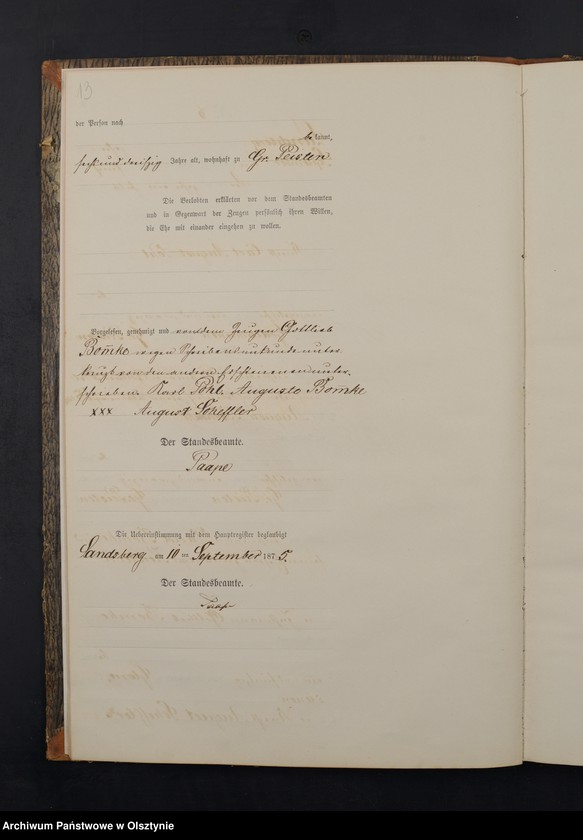 13
der Person nach
be kannt,
sechs und dreißig Jahre alt, wohnhaft zu Gr. Peisten
Die Verlobten erklärten vor dem Standesbeamten
und in Gegenwart der Zeugen persönlich ihren Willen,
die Ehe mit einander eingehen zu wollen.
Vorgelesen, genehmigt und von dem Zeugen Gottlieb
Bom̅ke wegen Schreibensunkunde unter
kreuzt von den andern Erschienenen unter-
schrieben Karl Pohl. Auguste Bomke
xxx August Scheffler
Der Standesbeamte.
Paape
Die Uebereinstimmung mit dem Hauptregister beglaubigt
Landsberg am 10 ten September 1875.
Der Standesbeamte.
Paape
Archiwum Państwowe w Olsztynie